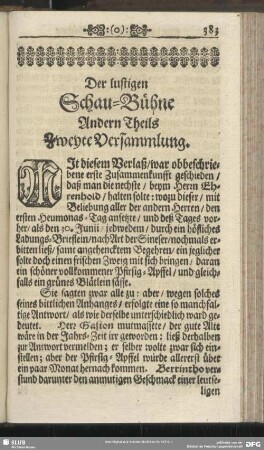 :(o): 383
Der lustigen
Schau-Bühne
Andern Theils
Zweyte Versammlung.
MIt diesem Verlaß/war obbeschrie-
bene erste Zusammenkunfft geschieden/
daß man die nechste/ beym Herrn Eh-
renhold/ halten solte: wozu dieser/ mit
Beliebung aller der andern Herren/ den
ersten Heumonas-Tag ansetzte/ und deß Tages vor-
her/als den 30. Junii/ jedwedem/ durch ein höfliches
Ladungs-Brieflein/nach Art der Sineser/nochmals er-
bitten ließ/ samt angehencktem Begehren/ ein jeglicher
solte doch einen frischen Zweig mit sich bringen/ daran
ein schöner vollkommener Pfirsig-Apffel/ und gleich-
falls ein grünes Blätlein sässe.
Sie sagten zwar alle zu: aber/ wegen solches
seines bittlichen Anhanges/ erfolgte eine so manchfäl-
tige Antwort/ als wie derselbe unterschiedlich ward ge-
deutet. Herr Gasion mutmassete/ der gute Alte
wäre in der Jahrs-Zeit irr geworden: ließ derhalben
zur Antwort vermelden; er selber wolte zwar sich ein-
stellen; aber der Pfirsig-Apffel würde allererst über
ein paar Monat hernach kommen. Berrintho ver-
stund darunter den anmutigen Geschmack einer leutse-
ligen